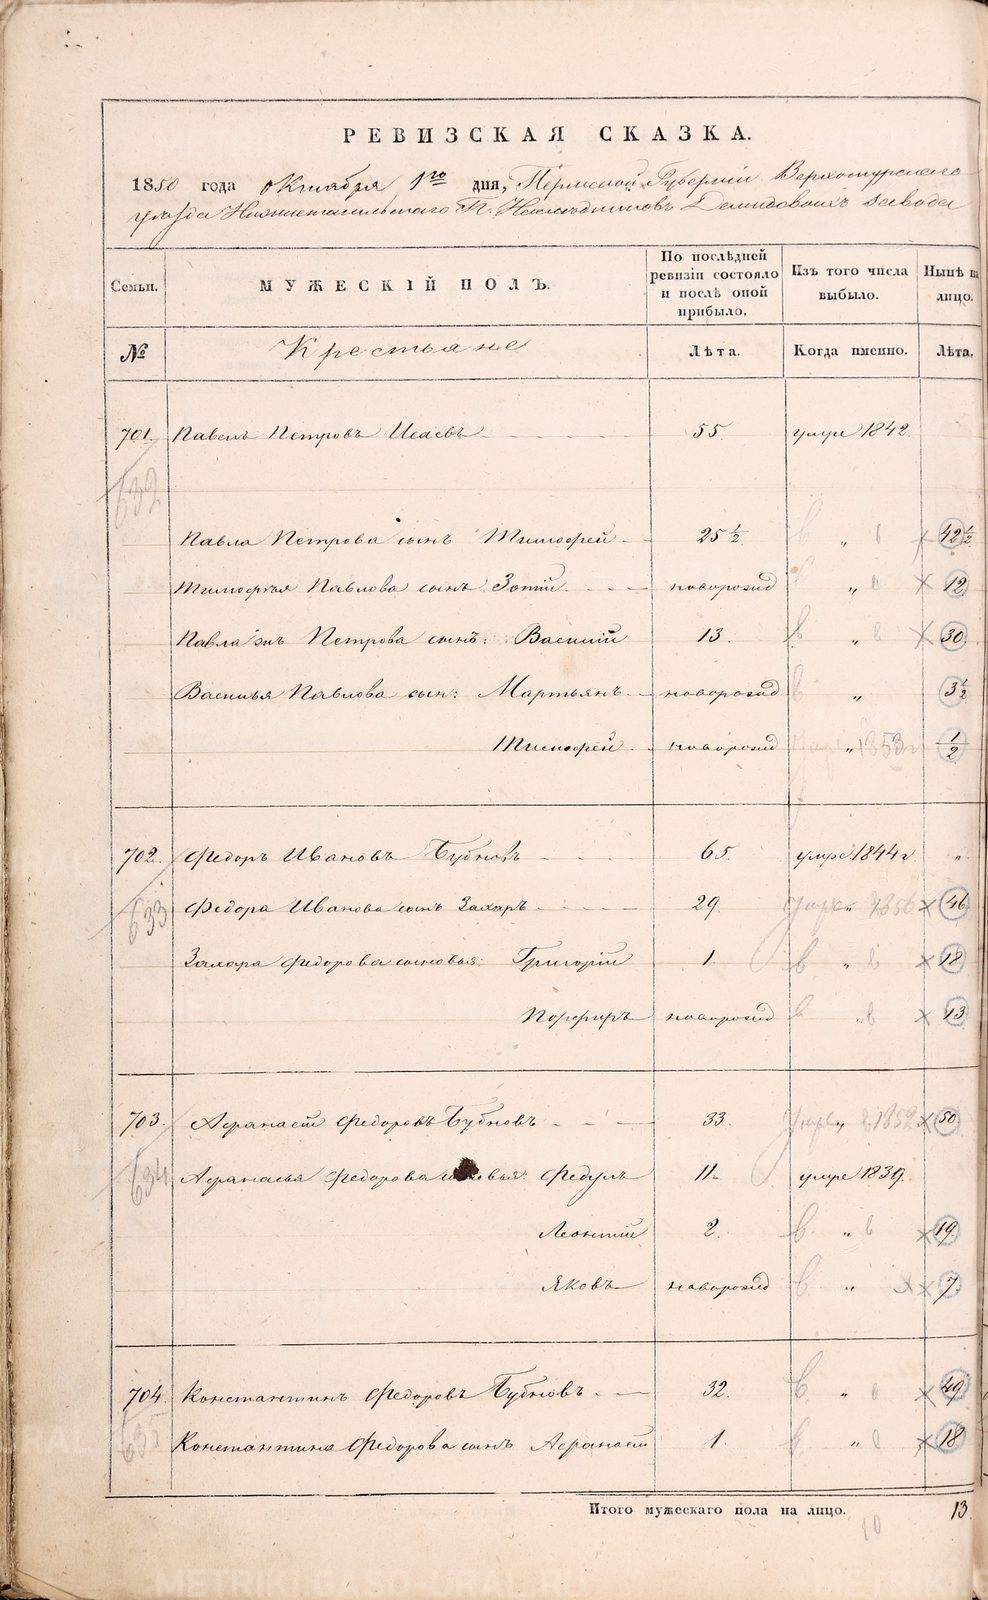 РЕВИЗСКАЯ СКАЗКА.
1850 года Октября 1го дня, Пермской Губернии Верхотурского
уезда Нижнетагильского Гг. Наследников Демидовых завода
Семьи. МУЖЕСКІЙ ПОЛЪ. По послѣдней ревизіи состояло и послѣ оной прибыло. Изъ того числа выбыло. Нынѣ на лицо.
№ Крестьяне Лѣта. Когда именно. Лѣта.
701. Павелъ Петровъ Исаевъ 55. умре 1842.
632
Павла Петрова сынъ Тимофей 25 1/2 „ 42 1/2
Тимофея Павлова сынъ Зотій новорожд „ 12
Павла же Петрова сынъ: Василий 13. „ 30
Василья Павлова сын: Мартьянъ новорожд „ 3 1/2
Тимофей новорожд „ 1853 1/2
702. Федоръ Ивановъ Бубновъ 65. умре 1844 г „
633 Федора Иванова сынъ Захаръ 29. „ 1856 46
Захара Федорова сыновья: Григорій 1 „ 18
Порфиръ новорожд „ 13
703. Афанасій Федоровъ Бубновъ 33. „ 1852 50
634 Афанасья Федорова сыновья: Федулъ 11 умре 1839.
Леонтій 2. „ 19
Яковъ новорожд „ 7
704. Константинъ Федоровъ Бубновъ 32. „ 49
635 Константина Федорова сынъ Афанасій 1. „ 18
Итого мужескаго пола на лицо. 13
10
METRIKI.GASO-URAL.RU